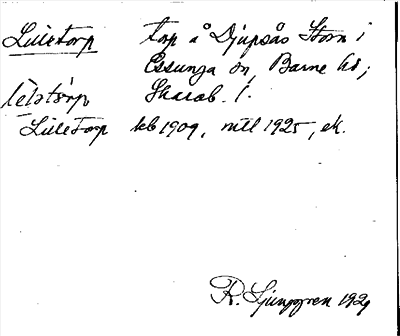 Lilletorp torp å Djupsås Storn i
Essunga sn, Barne hd;
Skarab. l.
Lilletorp kb 1909, mtl 1925, ek.
R. Ljunggren 1929